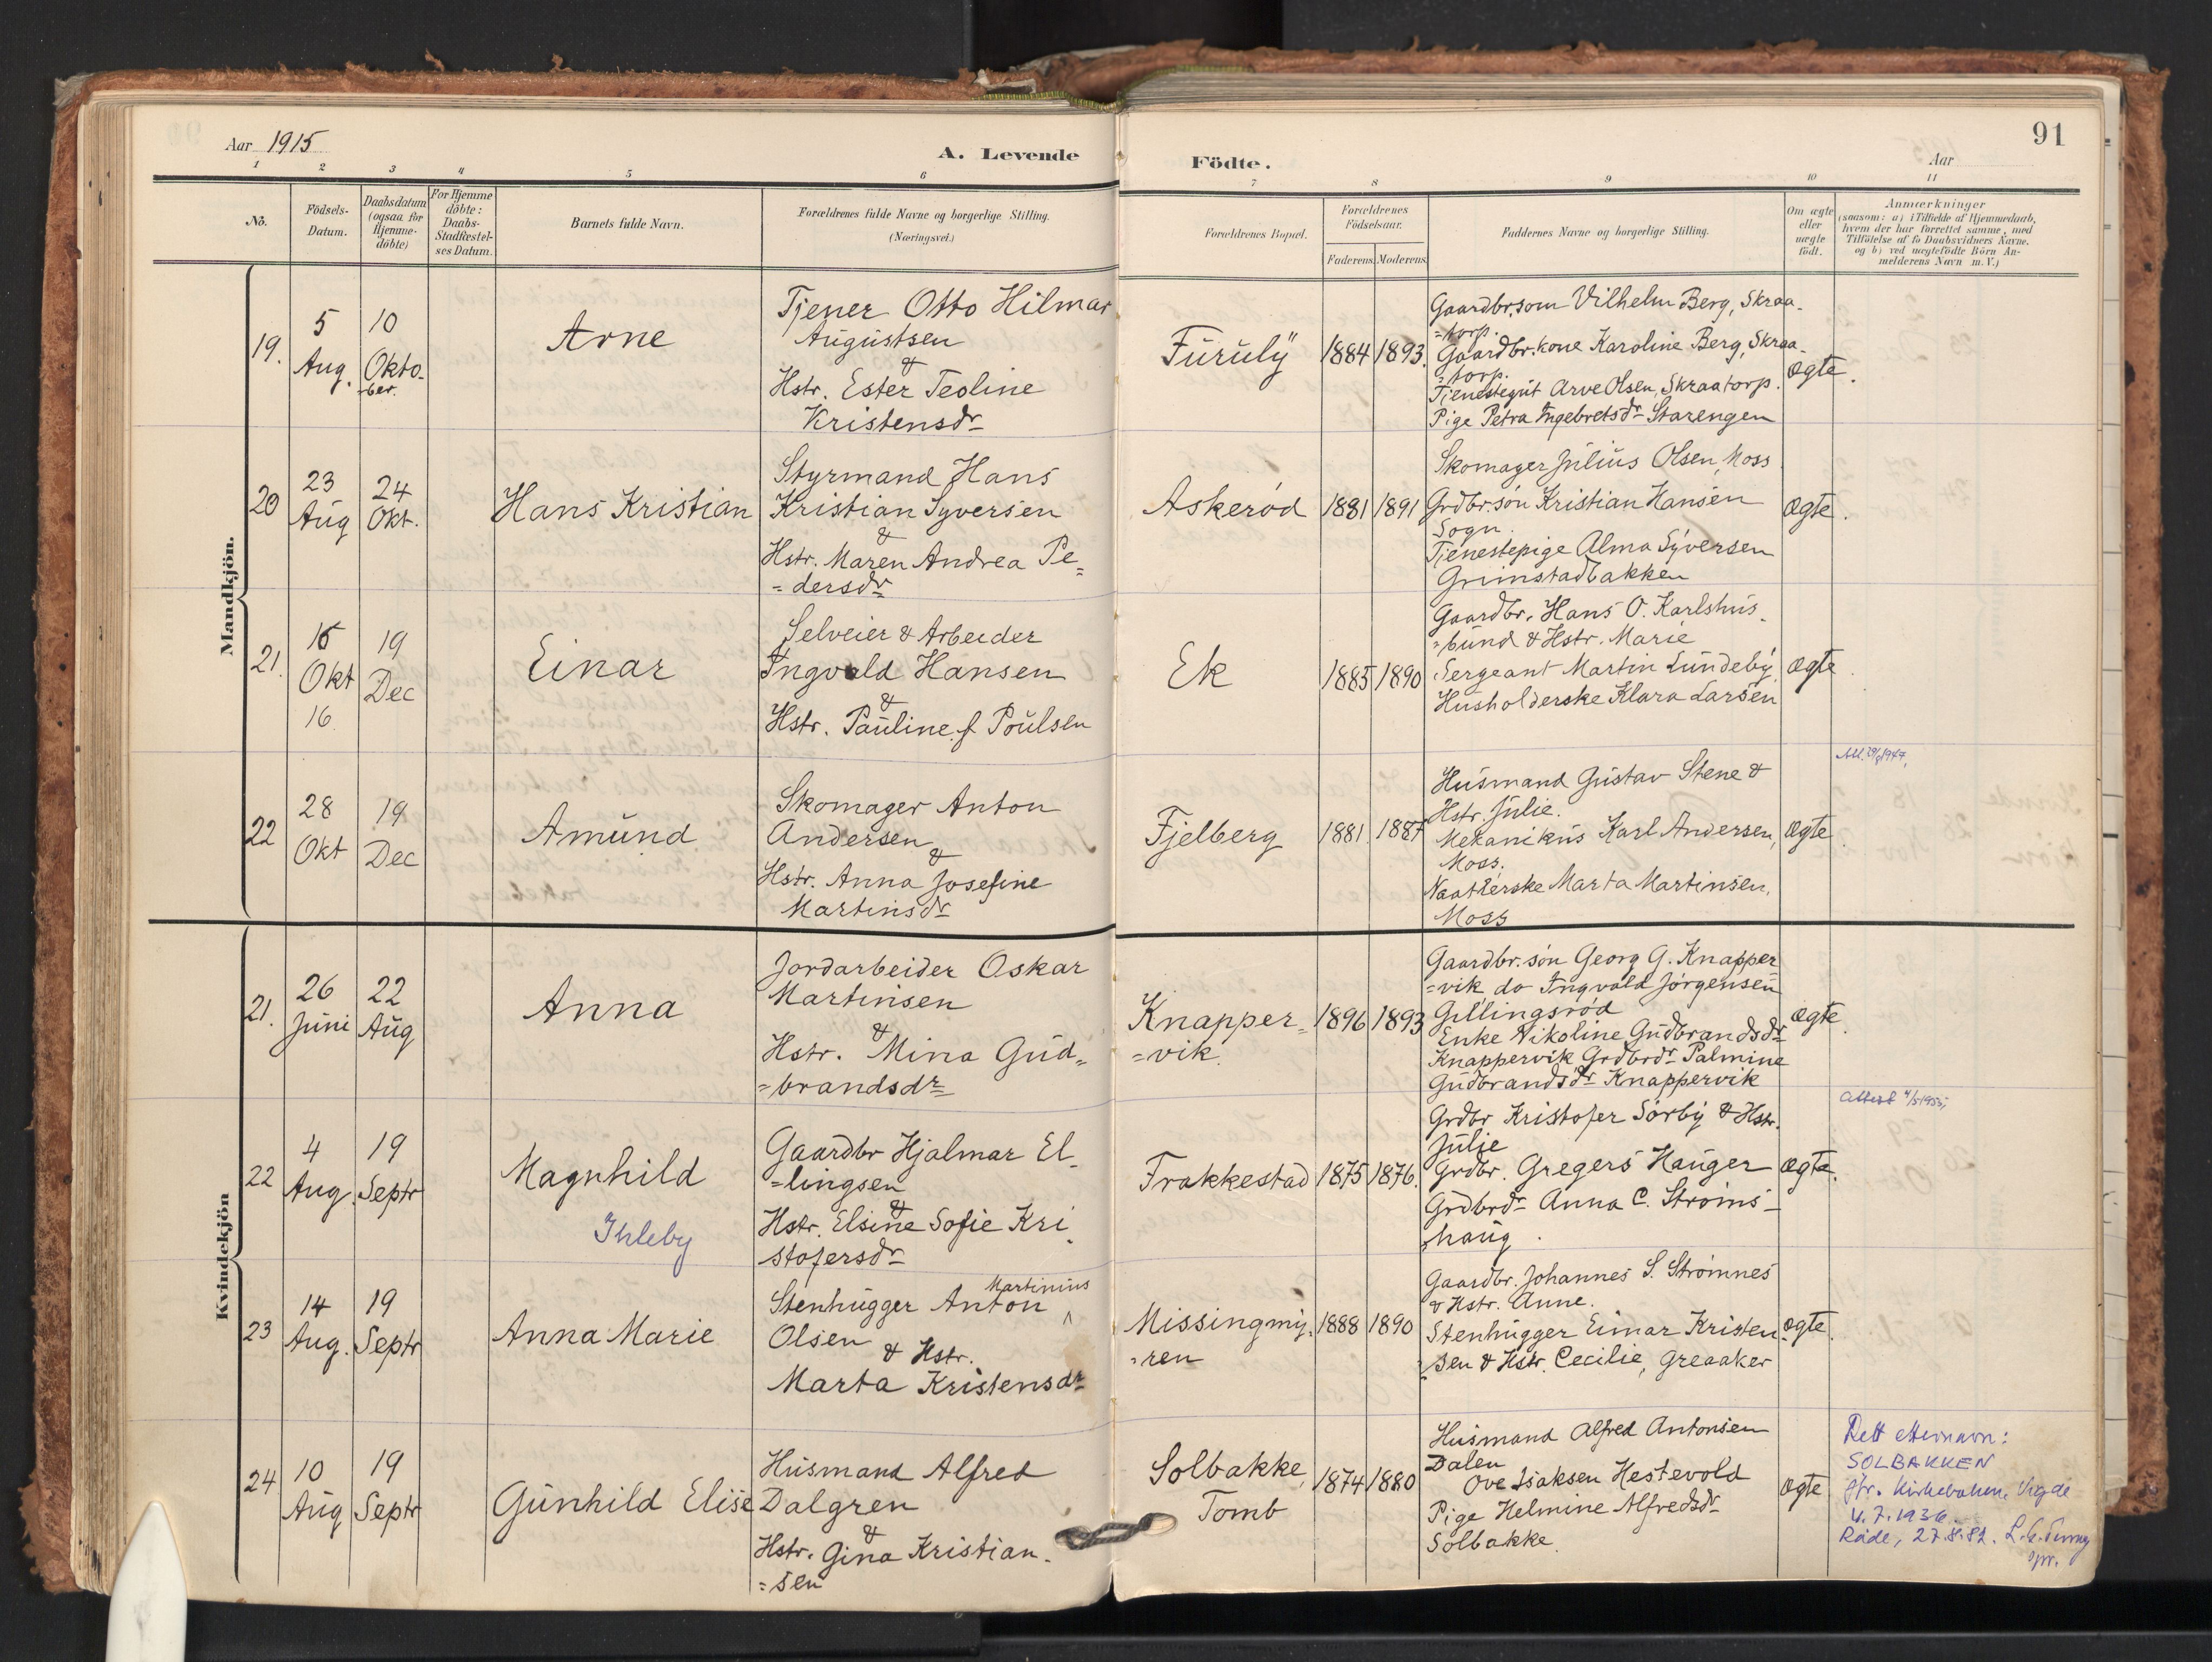 Aar 1915
A. Levende
Födte.
Aar
91
1 2 3 4 5 6 7 8 9 10 11
No.
Födsels-
Datum.
Daabsdatum
(ogsaa for
Hjemme-
döbte)
For Hjemme
döbte:
Daabs-
Stadfæstel-
ses Datum.
Barnets fulde Navn.
Forældrenes fulde Navne og borgerlige Stilling.
(Næringsvei.)
Forældrenes Bopæl.
Forældrenes
Födselsaar.
Faderens. Moderens.
Faddernes Navne og borgerlige Stilling.
Om ægte
eller
uægte
födt.
Anmærkninger
(saasom: a) i Tilfælde af Hjemmedaab,
hvem der har forrettet samme, med
Tilföielse af to Daabsvidners Navne.
og b) ved uægtefödte Börn An-
melderens Navn m. V.)
Mandkjön.
19.
5
Aug.
10
Okto-
-ber.
Arne
Tjener Otto Hilmar
Augustsen
&
Hstr. Ester Teoline
Kristensdr
Furuly
1884 1893.
Gaardbr.som Vilhelm Berg, Skraa-
=torp.
Gaardbr.kone Karoline Berg, Skraa-
=torp.
Tjenestegut Arve Olsen, Skraatorp.
Pige Petra Ingebretsdr Starengen
ægte.
20
23
Aug
24
Okt.
Hans Kristian
Styrmand Hans
Kristian Syversen
&
Hstr. Maren Andrea Pe=
=dersdr
Askerød
1881 1891
Skomager Julius Olsen, Moss
Grdbr.søn Kristian Hansen
Sogn.
Tjenestepige Alma Syversen
Grimstadbakken
ægte.
21.
15
Okt
16
19
Dec
Einar
Selveier & Arbeider
Ingvald Hansen
&
Hstr. Pauline f Poulsen
Ek
1885 1890
Gaardbr. Hans O. Karlshus-
=bund & Hstr. Marie
Sergeant Martin Lundeby
Husholderske Klara Larsen
ægte.
22
28
Okt
19
Dec
Amund
Skomager Anton
Andersen
&
Hstr. Anna Josefine
Martinsdr
Fjelberg
1881. 1887
Husmand Gustav Stene &
Hstr. Julie.
Mekanikus Karl Andersen,
Moss.
Naatlerske Marta Martinsen.
Moss
ægte.
1947,
Kvindekjön
21.
26
Juni
22
Aug
Anna
Jordarbeider Oskar
Martinsen
&
Hstr. Mina Gud=
=brandsdr
Knapper=
=vik.
1896 1893
Gaardbr.søn Georg G. Knapper
=vik do Ingvald Jørgensen
Gillingsrød
Enke Nikoline Gudbrandsdr
Knappervik Grdbrdr Palmine
Gudbrandsdr Knappervik
ægte.
22
4
Aug.
19
Septr
Magnhild
Ihleby
Gaardbr Hjalmar El-
=lingsen
&
Hstr. Elsine Sofie Kri-
stofersdr
Frakkestad
1875 1876.
Grdbr Kristofer Sørby & Hstr.
Julie
Grdbr. Gregers Hauger
Grdbrdr Anna C. Strøms-
haug.
ægte.
Attest 4/5 1955,
23
14
Aug.
19
Septr
Anna Marie
Stenhugger Anton Martinius
Olsen & Hstr.
Marta Kristensdr
Missingmy-
=ren
1888 1890
Gaardbr. Johannes S. Strømnes
& Hstr. Anne.
Stenhugger Eimar Kristen-
=sen & Hstr. Cecilie, Greaaker
ægte.
24
10
Aug
19
Septr
Gunhild Elise
Husmand Alfred
Dalgren
&
Hstr. Gina Kristian-
=sen
Solbakke,
Tomb
1874 1880
Husmand Alfred Antonsen
Dalen
Ove Isaksen Hestevold
Pige Helmine Alfredsdr
Solbakke.
ægte
Rett etternavn:
SOLBAKKEN
jfr. kirkeboken,
4.7.1936.
Råde, 27.8.82.
spr.